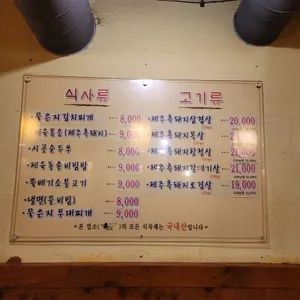 식사류
·묵은지김치찌개 8,000
·제육볶음(제주흑돼지) 9,000
·시골순두부 8,000
·제육돌솥비빔밥 9,000
·뚝배기소불고기 9,000
·냉면(물,비빔) 8,000
·묵은지 부대찌개 9,000
고기류
·제주흑돼지삼겹살 20,000
·제주흑돼지목살
·제주흑돼지항정살 21,000
·제주흑돼지갈매기살 21,000
·제주흑돼지도겹살 19,000
*본 업소( )의 모든 식자재는 국내산입니다*